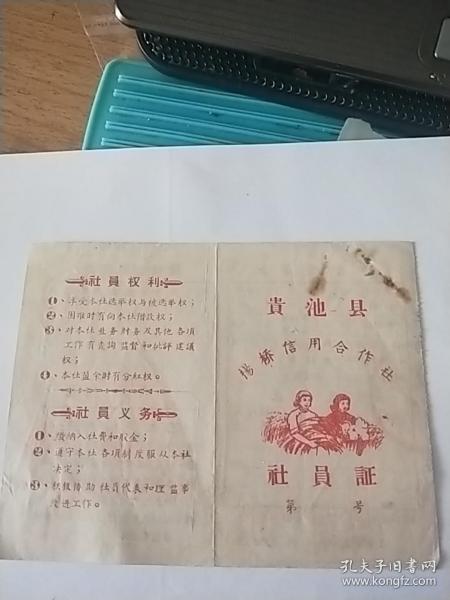 社員权利
1、享受本社选举权与被选举权；
2、困难时有向本社借款权；
3、对本社业务财务及其他各項
工作有查詢監督和批評建議
权；
4、本社盈余时有分紅权。
社員义务
1、繳納入社費和股金；
2、遵守本社各項制度服从本社
决定；
3、积极借助社員代表和理監事
改进工作。
貴池县
楊桥信用合作社
社員証
第 号
孔夫子旧书网
www.kongfz.com